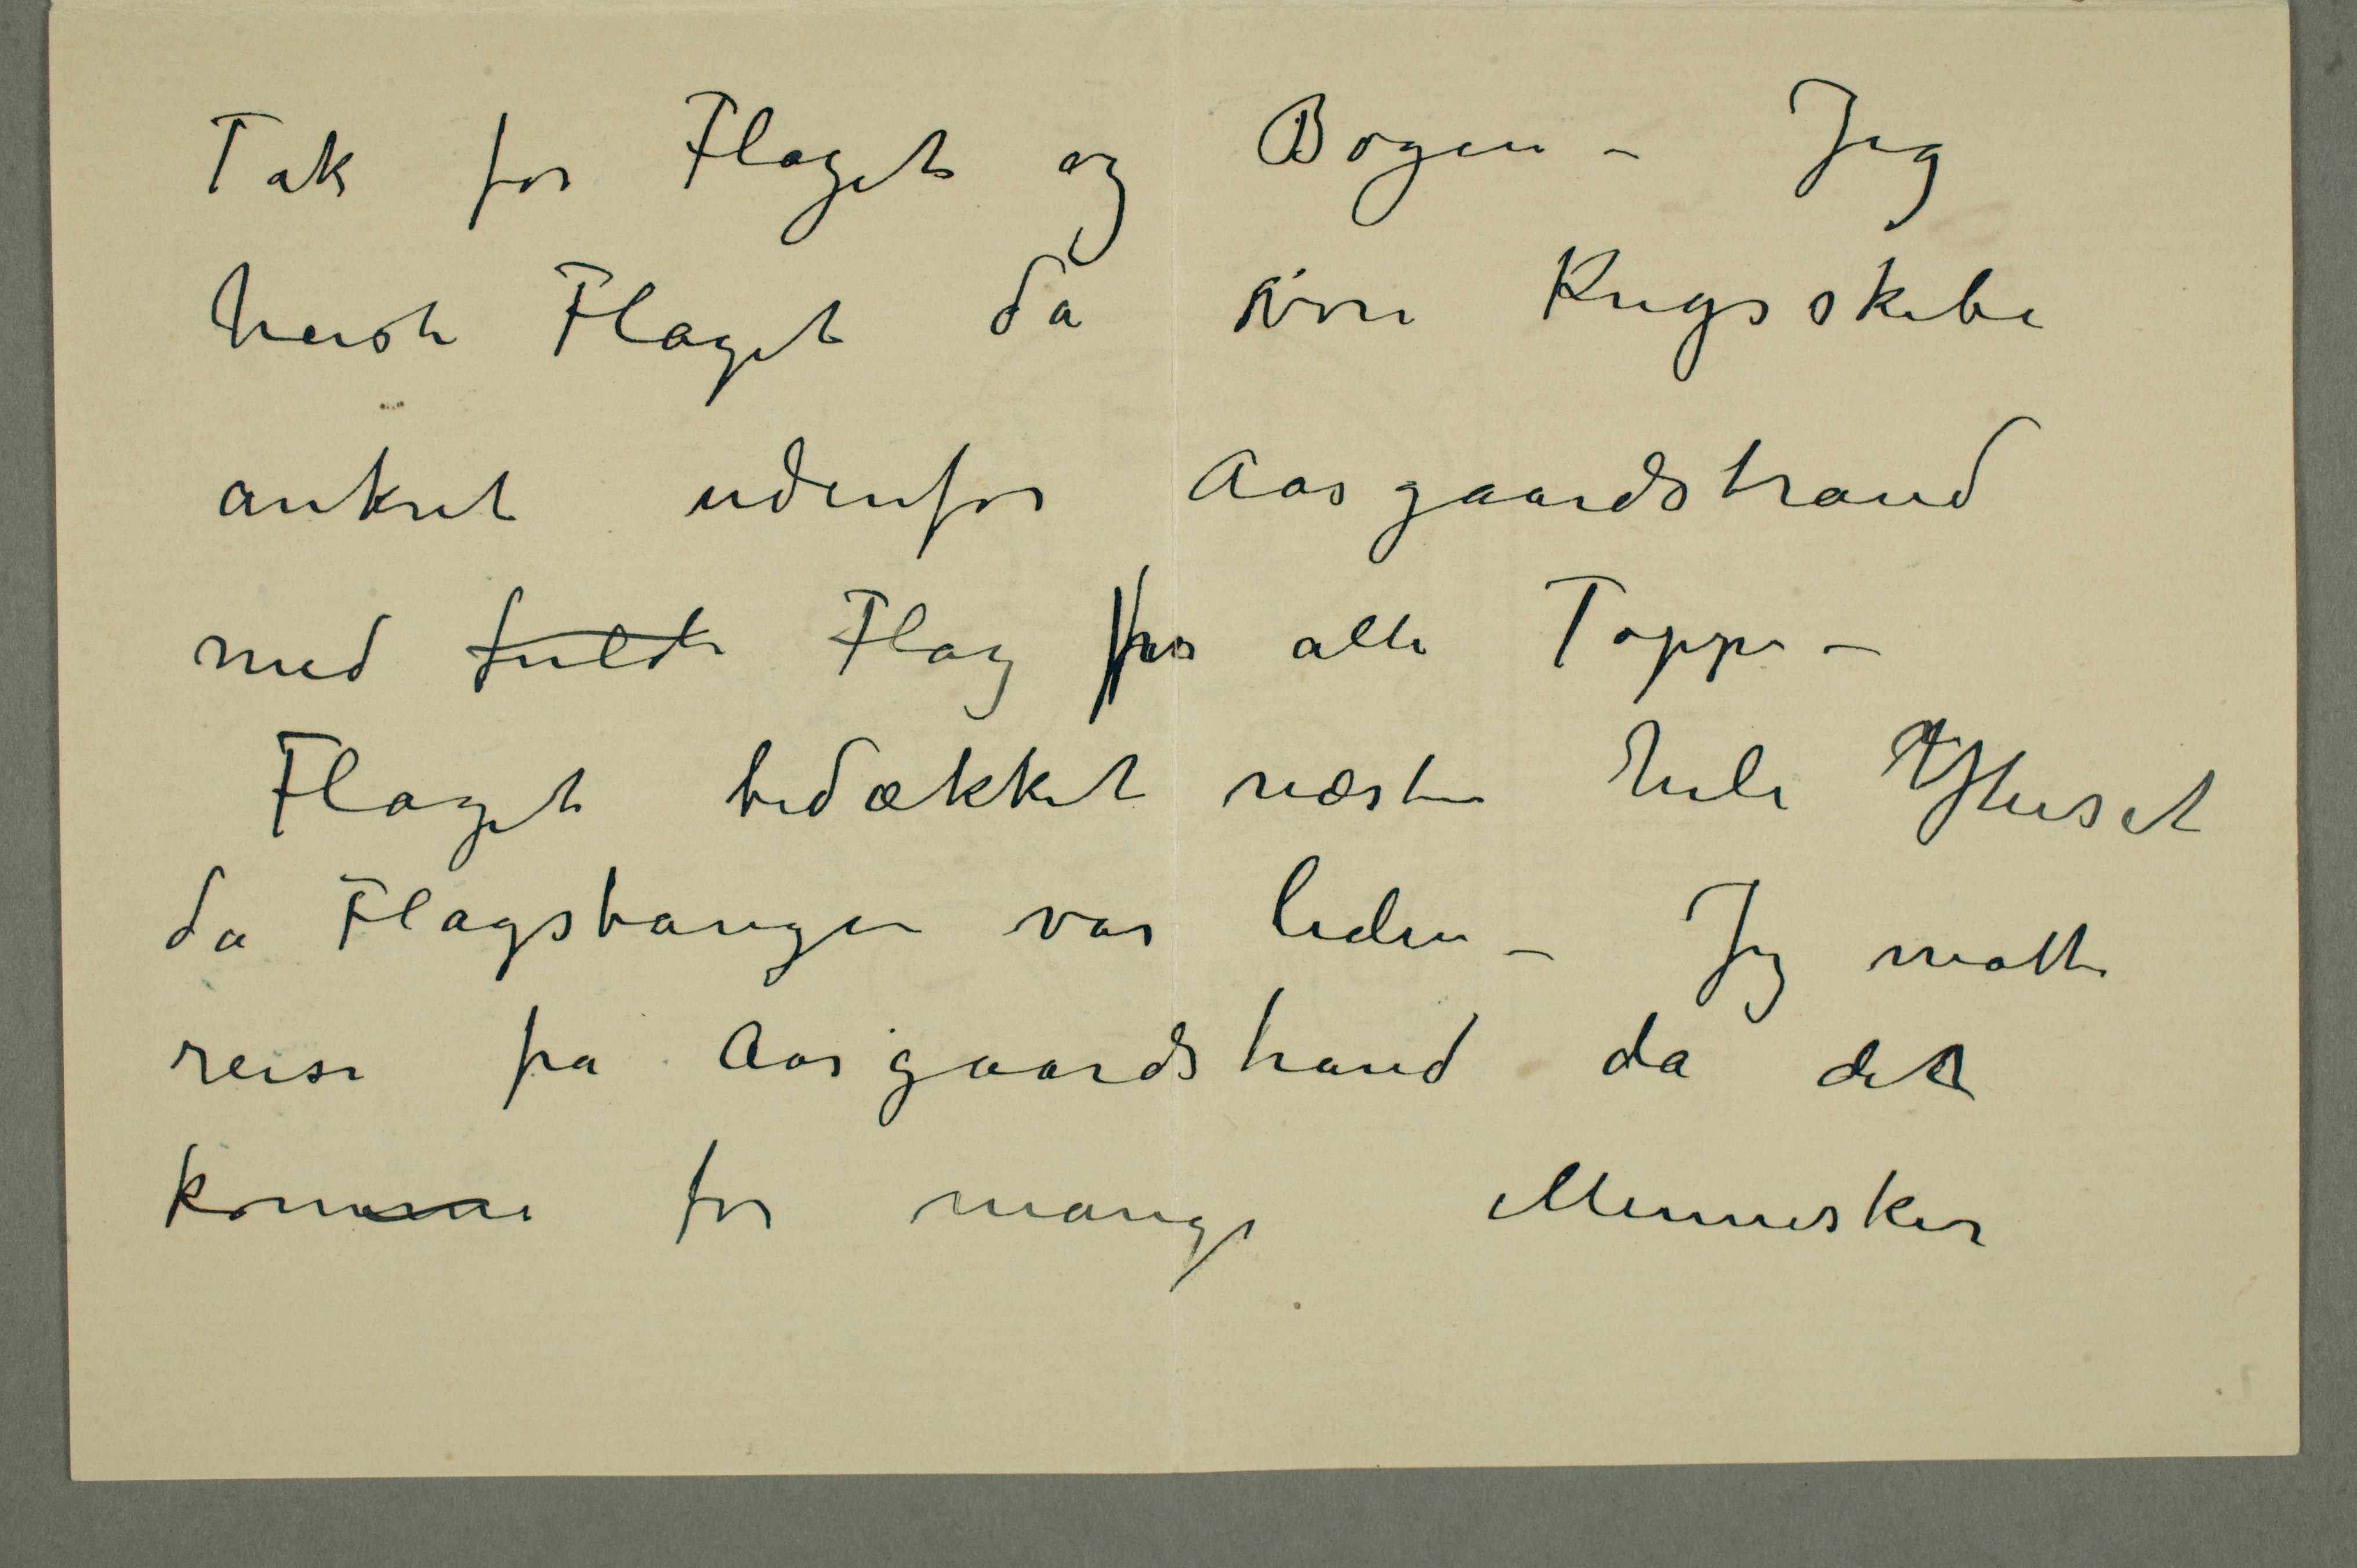 Tak for Flaget og Bogen – Jeg
heiste Flaget da vore Krigsskibe
ankret udenfor Aasgaardstrand
med fulde Flag fra alle Toppe –
Flaget bedækket næsten hele Huset
da Flagstangen var liden – Jeg måtte
reise fra Aasgaardstrand da det
kom for mange Mennesker